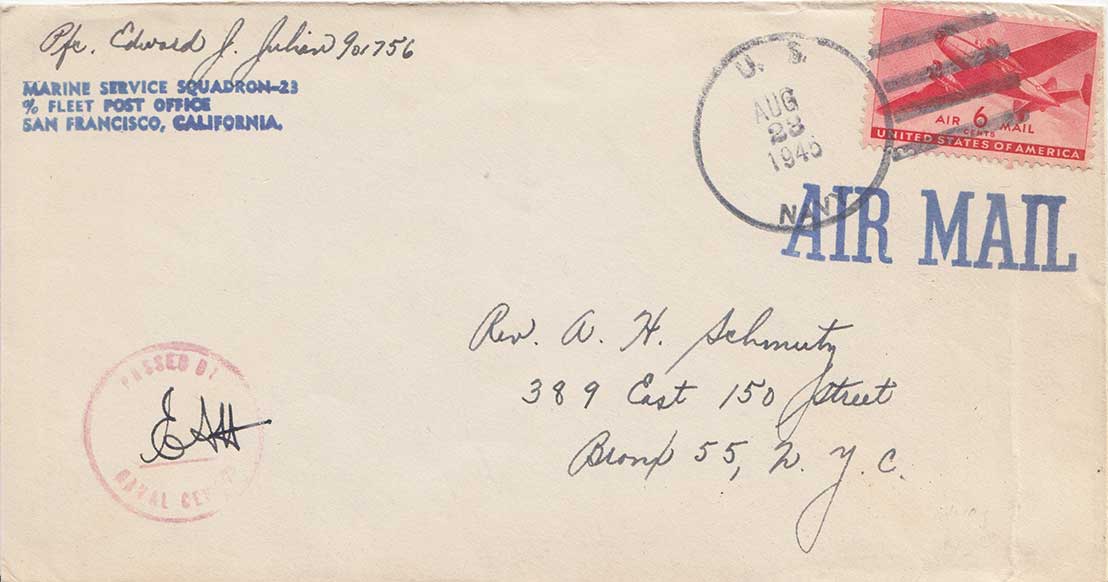 Pfc. Edward J. Julian 901756
MARINE SERVICE SQUADRON-23
% FLEET POST OFFICE
SAN FRANCISCO, CALIFORNIA.
U. S.
AUG
23
1945
NAVY
AIR 6 MAIL
CENTS
UNITED STATES OF AMERICA
AIR MAIL
Rev. A. H. Schmutz
389 East 150 Street
Bronx 55, N. Y. C.
PASSED BY
NAVAL CENSOR